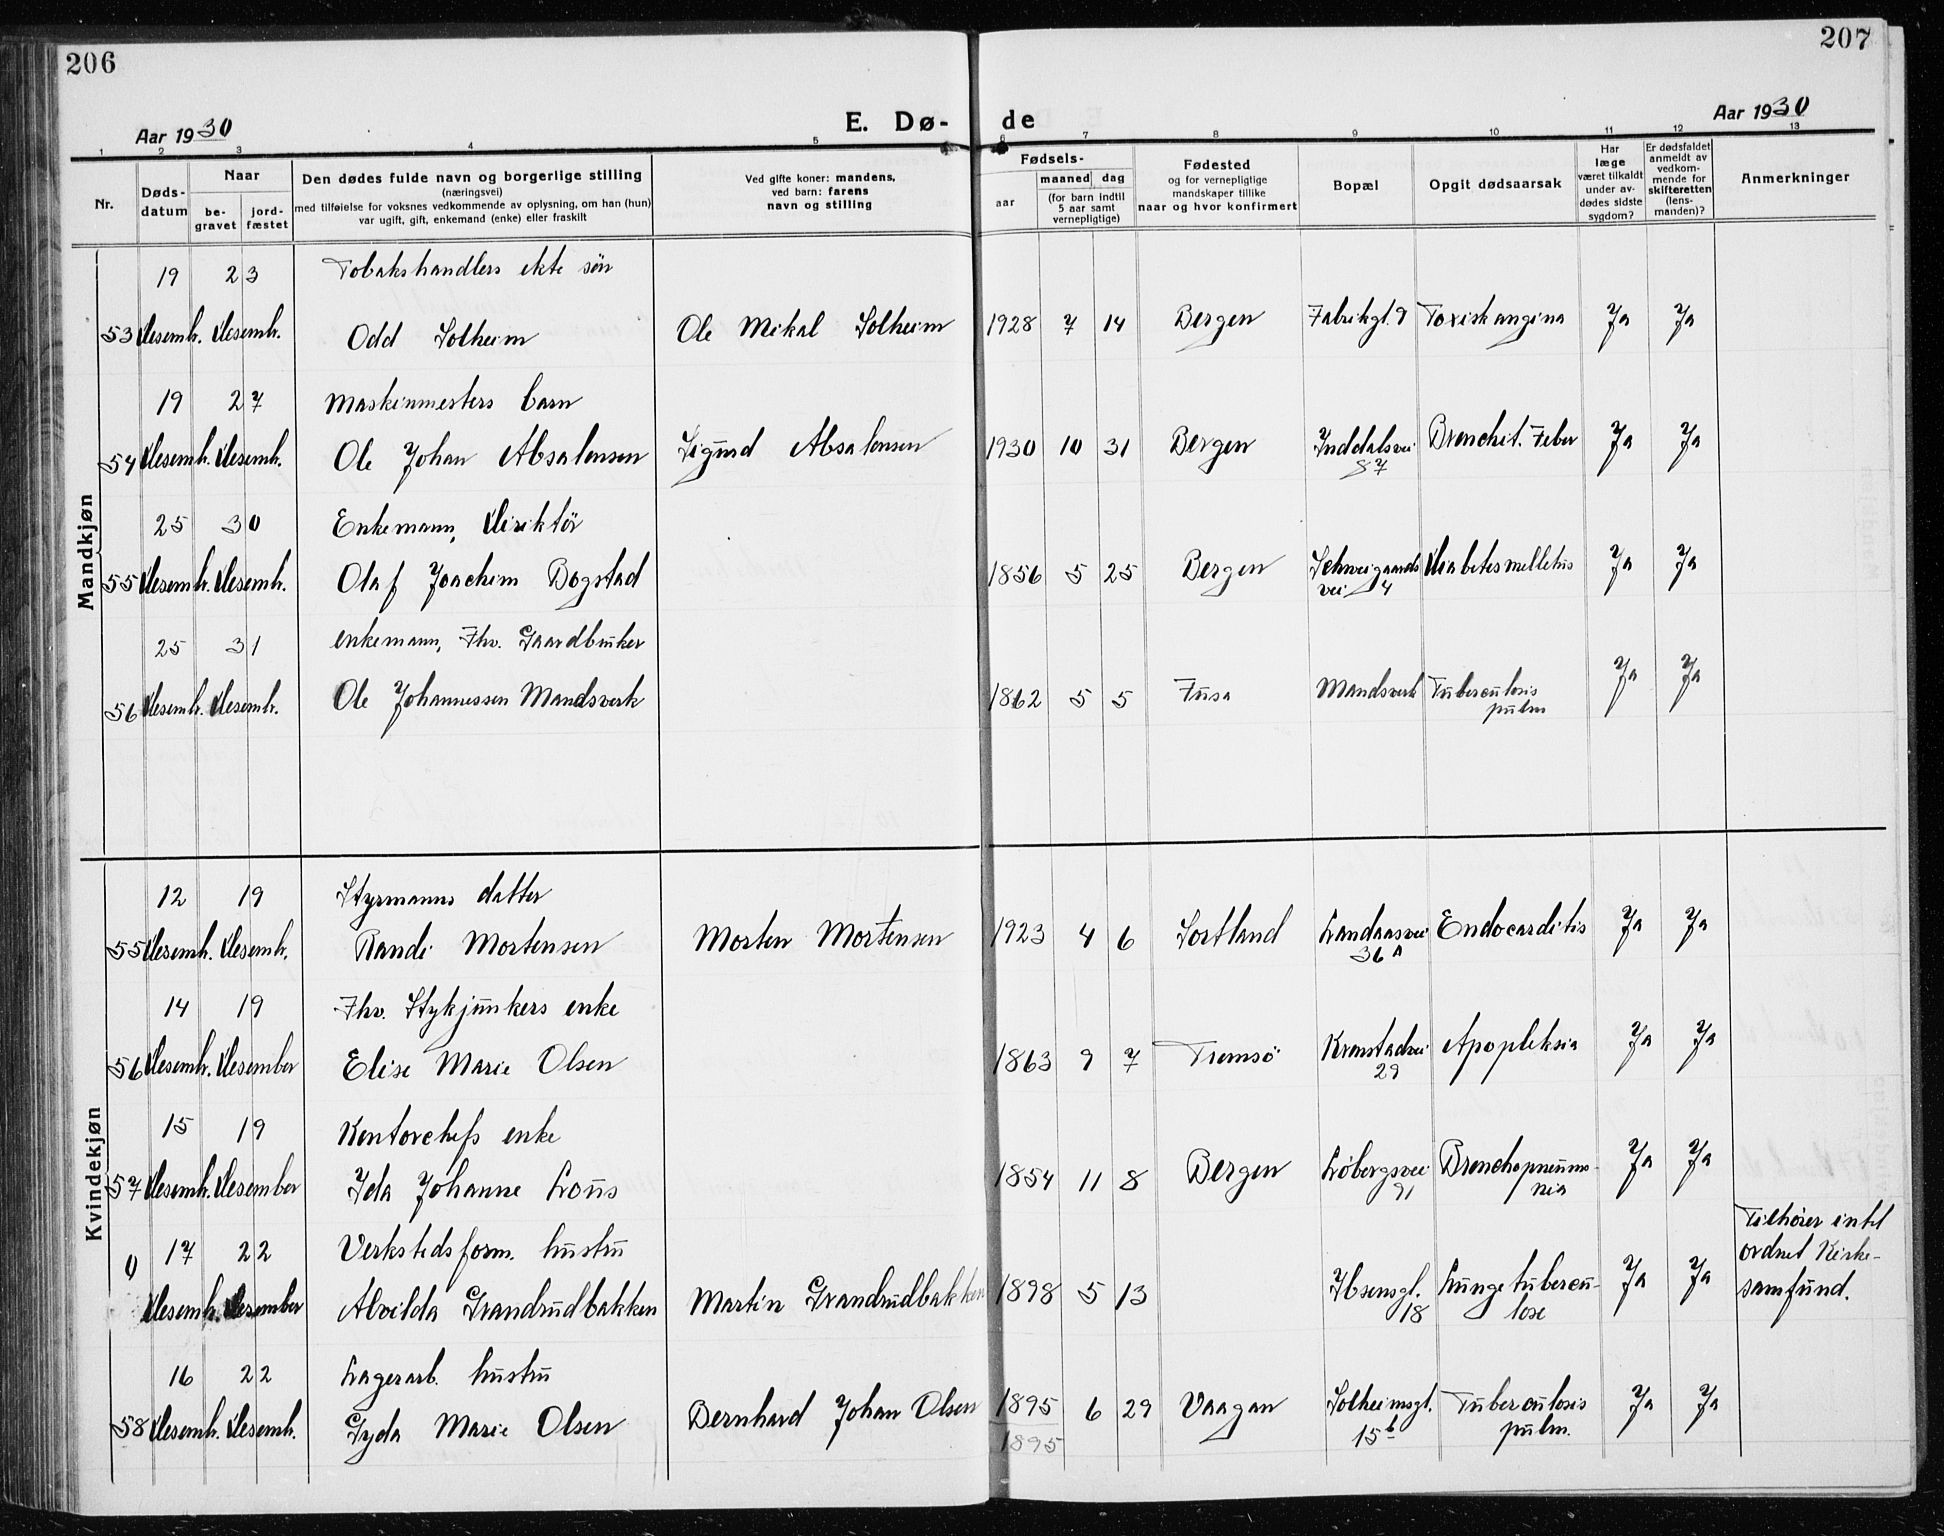 206
207
Aar 1930
E. Dø- de
Aar 1930
1 2 3 4 5 6 7 8 9 10 11 12 13
Nr.
Døds-
datum
Naar
be-
gravet
jord-
fæstet
Den dødes fulde navn og borgerlige stilling
(næringsvei)
med tilføielse for voksnes vedkommende av oplysning, om han (hun)
var ugift, gift, enkemand (enke) eller fraskilt
Ved gifte koner: mandens,
ved barn: farens
navn og stilling
Fødsels-
aar
maaned dag
(for barn indtil
5 aar samt
vernepligtige)
Fødested
og for vernepligtige
mandskaper tillike
naar og hvor konfirmert
Bopæl
Opgit dødsaarsak
Har
læge
været tilkaldt
under av-
dødes sidste
sygdom?
Er dødsfaldet
anmeldt av
vedkom-
mende for
skifteretten
(lens-
manden)?
Anmerkninger
Mandkjøn
19 23 Tobakshandlers ekte søn
53 Desembr. Desembr. Odd Solheim Ole Mikal Solheim 1928 7 14 Bergen Fabrikgt. 9 Toxisk angina Ja Ja
19 27 Maskinmesters barn
54 Desembr. Desembr. Ole Johan Absalonsen Sigurd Absalonsen 1930 10 31 Bergen Inddalsvei Bronchit. Feber Ja Ja
87
25 30 Enkemann, Direktør
55 Desembr. Desembr. Olaf Joachim Bogstad 1856 5 25 Bergen Schweigaards Diabetes melletus Ja Ja
vei 4
25 31 enkemann, Fhv. Gaardbruker
56 Desembr. Desembr. Ole Johannessen Mandsverk 1862 5 5 Fusa Mandsverk Tuberculosis Ja Ja
pulm
Kvindekjøn
12 19 Styrmanns datter
55 Desembr. Desembr. Randi Mortensen Morten Mortensen 1923 4 6 Sortland Landaasvei Endocarditis Ja Ja
36 A
14 19 Fhv. Stykjunkers enke
56 Desembr. Desember Elise Marie Olsen 1863 9 7 Tromsø Kronstadvei Apopleksia Ja Ja
29
15 19 Kontorchefs enke
57 Desembr. Desember Ida Johanne Lous 1854 11 8 Bergen Løbergsvei Bronchopneumo- Ja Ja
91 nia
0 17 22 Verkstedsform. hustru
Desembr. Desember Alvilda Grandrudbakken Martin Grandrudbakken 1898 5 13 Ibsensgt. Lungetubercu- Ja Ja Tilhører intet
18 lose ordnet Kirke-
samfund.
16 22 Lagerarb. hustru
58 Desembr. Desembr. Gyda Marie Olsen Bernhard Johan Olsen 1895 6 29 Vaagan Solheimsgt. Tuberculosis Ja Ja
1895 15 b pulm.